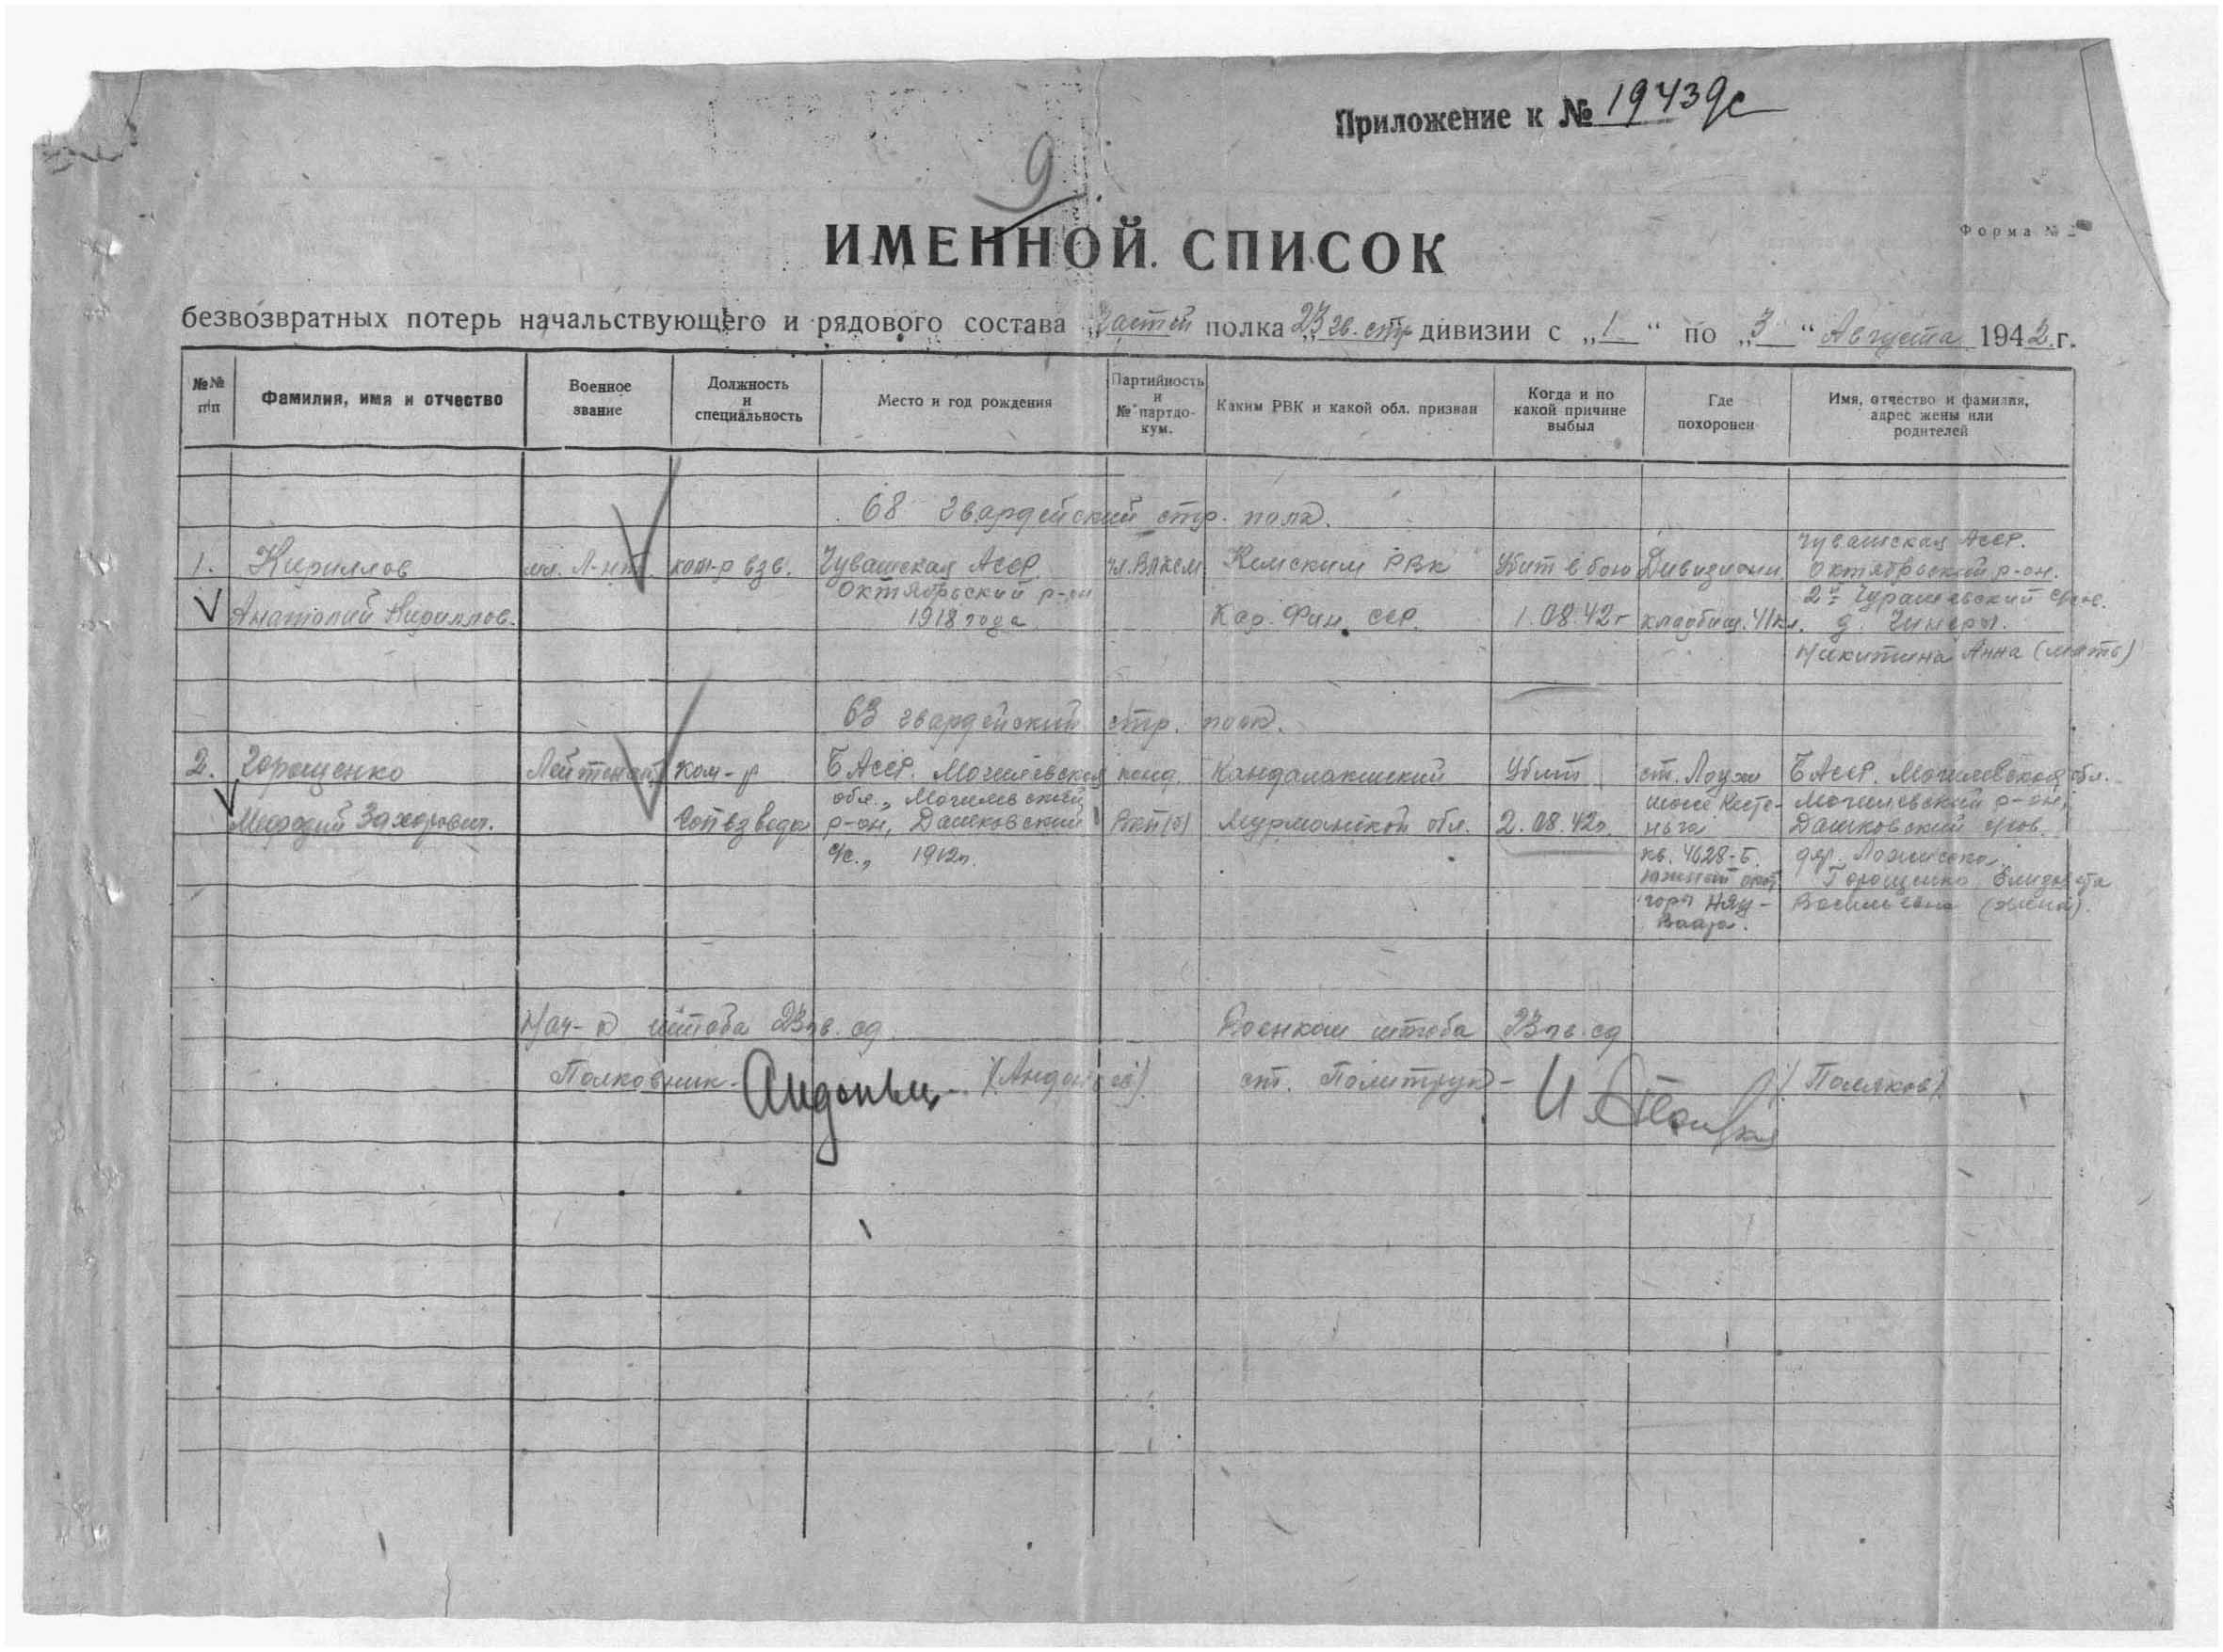 Приложение к № 19439с
9
ИМЕННОЙ СПИСОК
Форма №
безвозвратных потерь начальствующего и рядового состава „частей полка 23 гв. стр дивизии с „1“ по „3“ Августа 1942 г.
№№ п/п
Фамилия, имя и отчество
Военное звание
Должность и специальность
Место и год рождения
Партийность и № партдокум.
Каким РВК и какой обл. призван
Когда и по какой причине выбыл
Где похоронен
Имя, отчество и фамилия, адрес жены или родителей
68 гвардейский стр. полк.
Чувашская АССР.
1. Кириллов мл. Л-нт. ком-р взв. Чувашская АССР чл. ВЛКСМ Кемским РВК Убит в бою Дивизион. Октябрьский р-он.
Октябрьский р-он
Анатолий Кириллов. 1918 года Кар. Фин. ССР. 1.08.42г кладбищ. 41 км. д. Чинеры.
Никитина Анна (мать)
63 гвардейский стр. полк.
2. Горощенко Лейтенант Ком-р БАССР. Могилевская канд. Кандалакшский Убит ст. Лоухи БАССР. Могилевская обл.
обл., Могилевский Могилевский р-он,
Мефодий Захарович. взвода р-он, Дашковский ВКП(б) Мурманской обл. 2.08.42г. Дашковский
с/с., 1912г. кв. 4628-Б.
Горощенко Елизавета
горы Васильевна (жена).
Ваара.
Нач-к штаба 23 гв. сд. Военком штаба 23 гв. сд
Полковник- (Андоньев) ст. Политрук- (Поляков)